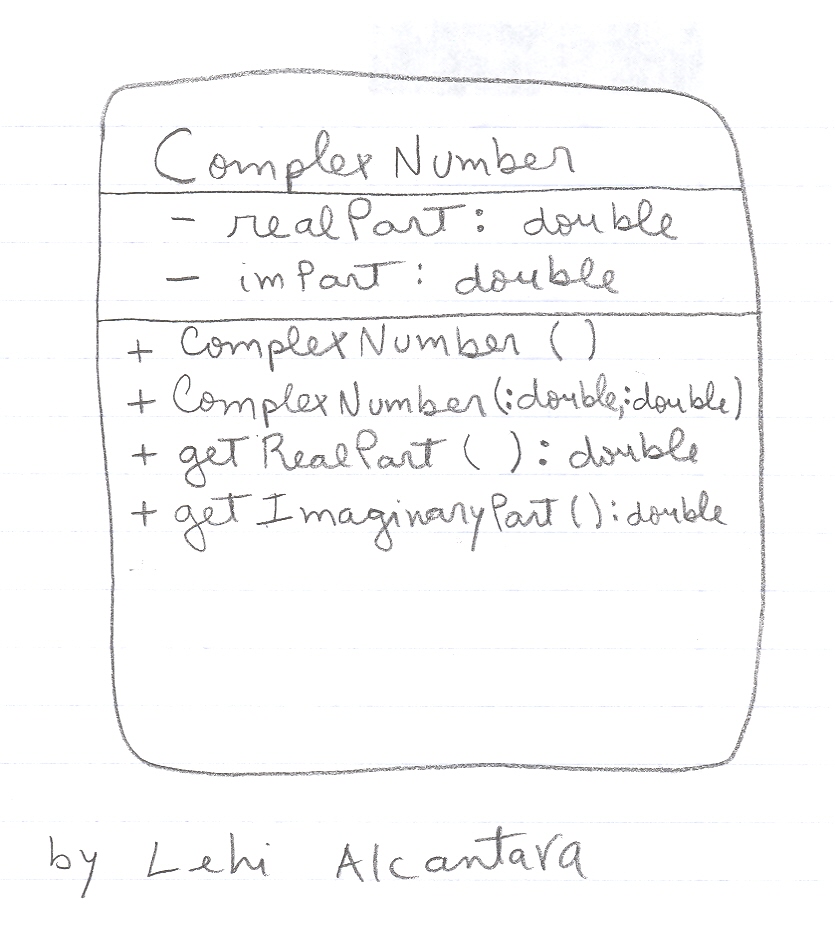 ComplexNumber
- realPart: double
- imPart: double
+ ComplexNumber ()
+ ComplexNumber(:double,:double)
+ getRealPart ( ): double
+ getImaginaryPart():double
by Lehi Alcantara